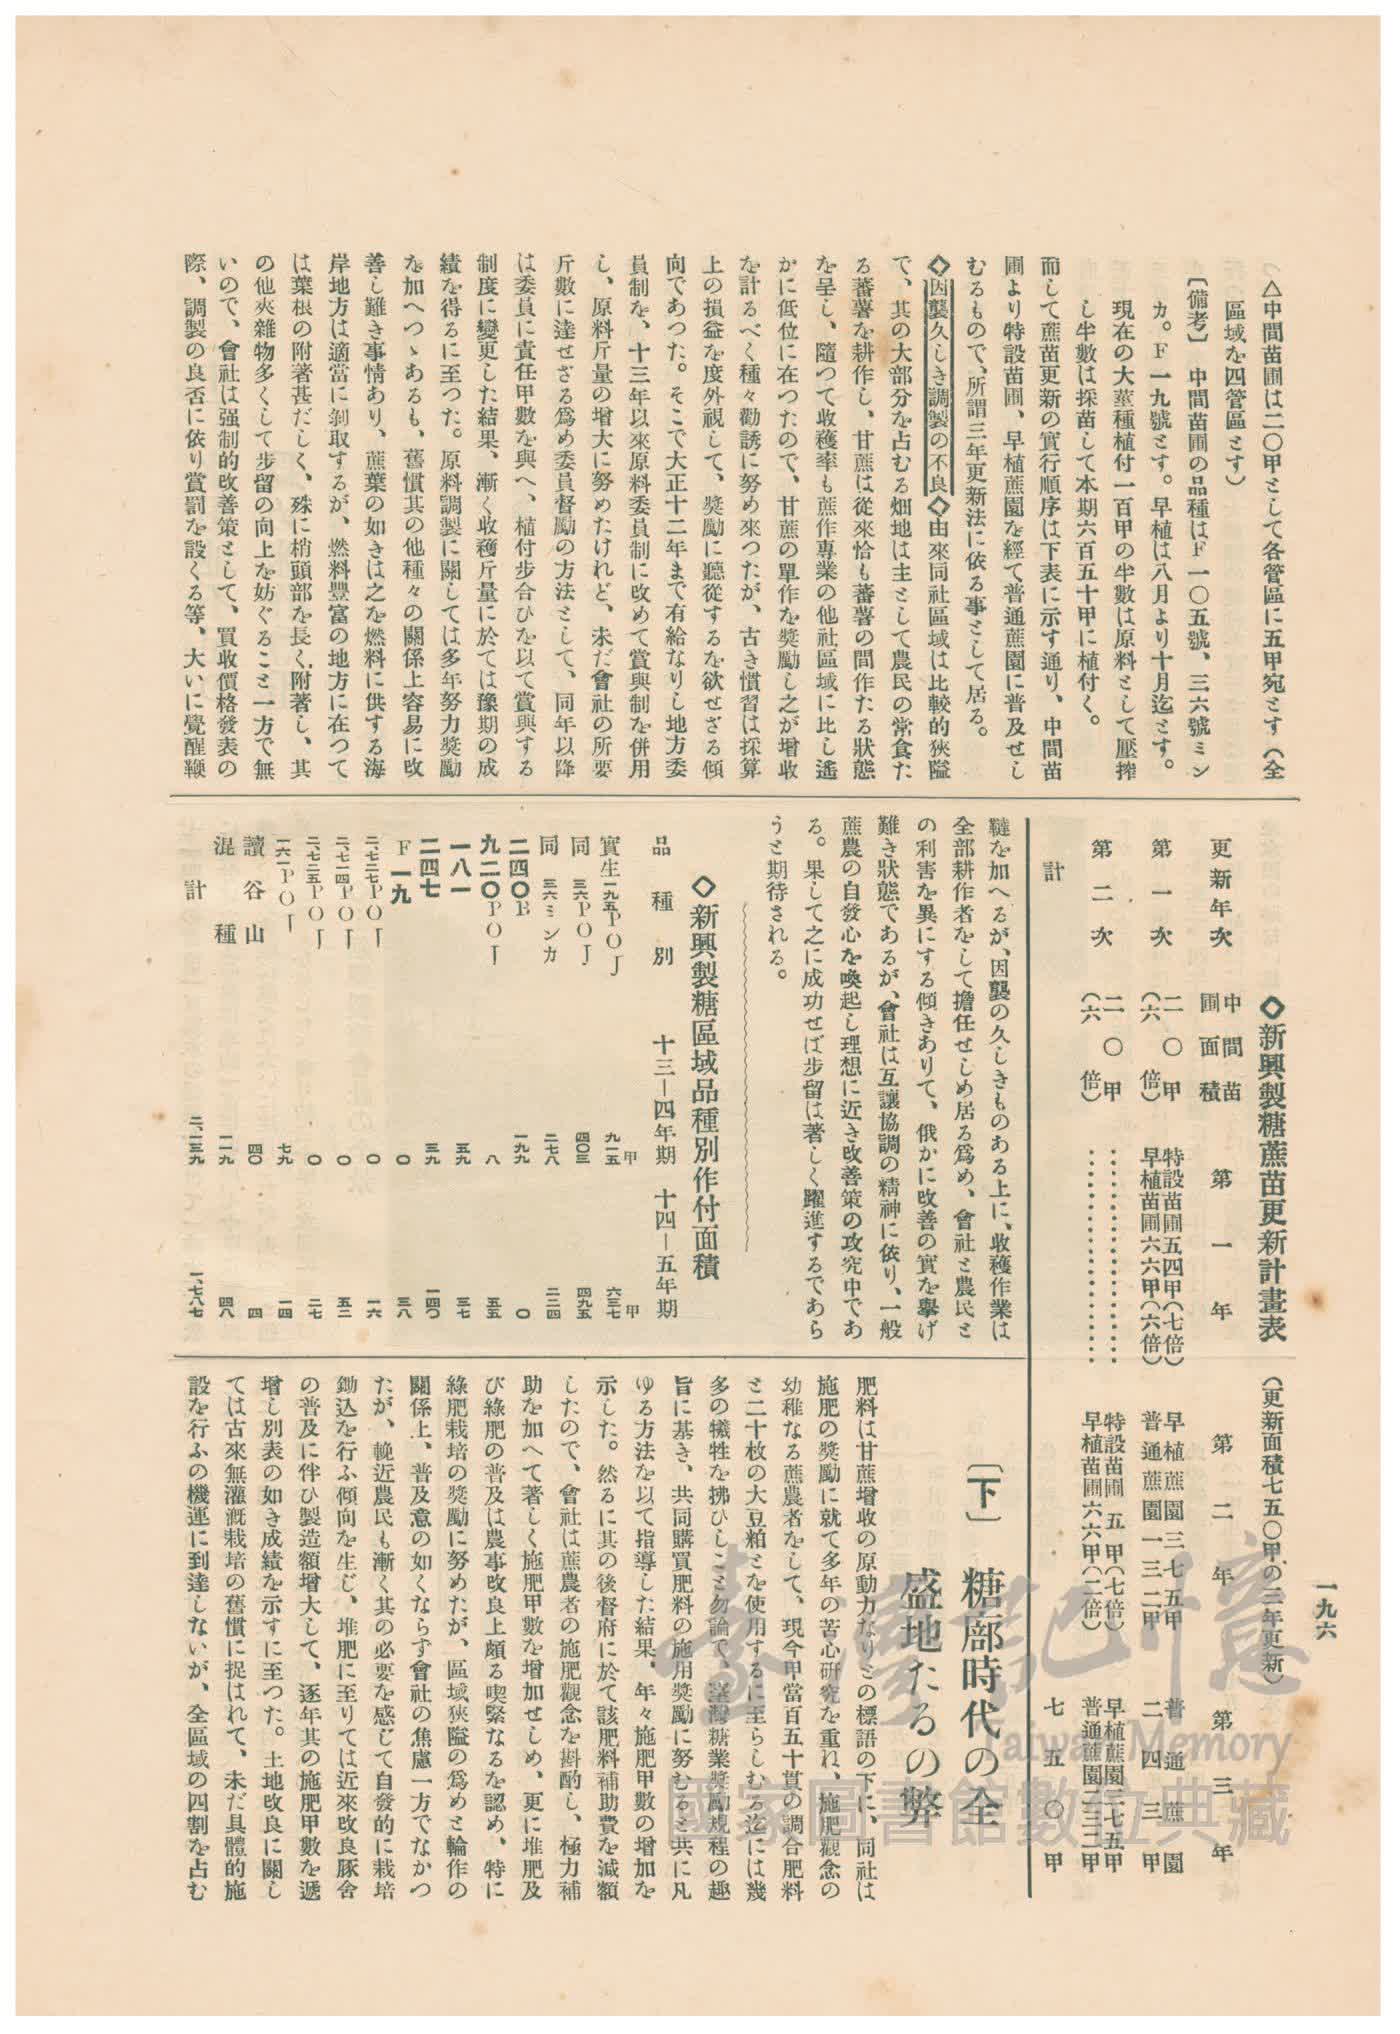 一九六
△中間苗圃は二〇甲として各管區に五甲宛とす（全
區域を四管區とす）
〔備考〕 中間苗圃の品種はF一〇五號、三六號ミン
カ。F一九號とす。早植は八月より十月迄とす。
現在の大莖種植付一百甲の半數は原料として壓搾
し半數は採苗して本期六百五十甲に植付く。
而して蔗苗更新の實行順序は下表に示す通り、中間苗
圃より特設苗圃、早植蔗園を經て普通蔗園に普及せし
むるもので、所謂三年更新法に依る事として居る。
◇因襲久しき調製の不良◇由來同社區域は比較的狹隘
で、其の大部分を占むる畑地は主として農民の常食た
る蕃薯を耕作し、甘蔗は從來恰も蕃薯の間作たる狀態
を呈し、隨つて收穫率も蔗作專業の他社區域に比し遙
かに低位に在つたので、甘蔗の單作を奬勵し之が增收
を計るべく種々勸誘に努め來つたが、古き慣習は採算
上の損益を度外視して、奬勵に聽從するを欲せざる傾
向であつた。そこで大正十二年まで有給なりし地方委
員制を、十三年以來原料委員制に改めて賞與制を併用
し、原料斤量の增大に努めたけれど、未だ會社の所要
斤數に達せざる爲め委員督勵の方法として、同年以降
は委員に責任甲數を與へ、植付步合ひを以て賞與する
制度に變更した結果、漸く收穫斤量に於ては豫期の成
績を得るに至つた。原料調製に關しては多年努力奬勵
を加へつゝあるも、舊慣其の他種々の關係上容易に改
善し難き事情あり、蔗葉の如きは之を燃料に供する海
岸地方は適當に剝取するが、燃料豐富の地方に在つて
は葉根の附著甚だしく、殊に梢頭部を長く附著し、其
の他夾雜物多くして步留の向上を妨ぐること一方で無
いので、會社は强制的改善策として、買收價格發表の
際、調製の良否に依り賞罰を設くる等、大いに覺醒鞭
◇新興製糖蔗苗更新計畫表 （更新面積七五〇甲の三年更新）
更新年次 中間苗圃面積 第一年 第二年 第三年
第一次 二〇甲（六倍） 特設苗圃五四甲（七倍）早植苗圃六六甲（六倍） 早植蔗園三七五甲普通蔗園一三二甲 普通蔗園二四三甲
第二次 二〇甲（六倍） ………… 特設苗圃五甲（七倍）早植苗圃六六甲（二倍） 早植蔗園三七五甲普通蔗園二三二甲
計 七五〇甲
韃を加へるが、因襲の久しきものある上に、收穫作業は
全部耕作者をして擔任せしめ居る爲め、會社と農民と
の利害を異にする傾きありて、俄かに改善の實を擧げ
難き狀態であるが、會社は互讓協調の精神に依り、一般
蔗農の自發心を喚起し理想に近き改善策の攻究中であ
る。果して之に成功せば步留は著しく躍進するであら
うと期待される。
◇新興製糖區域品種別作付面積
品種別 十三―四年期 十四―五年期
實生一九五POJ 九一五甲 六三七甲
同 三六POJ 四〇三 四九五
同 三六ミンカ 二七八 二二四
二四〇B 一九九 〇
九二〇POJ 八 五五
一八一 五九 三七
二四七 三九 一四〇
F一九 〇 三八
二、七二七POJ 〇 一六
二、七一四POJ 〇 五二
二、七二五POJ 〇 二七
一六一POJ 七九 一四
讀谷山 四〇 四
混種 一一九 四八
計 二、一三九 一、七八七
〔下〕 糖廍時代の全
盛地たるの弊
肥料は甘蔗增收の原動力なりとの標語の下に、同社は
施肥の奬勵に就て多年の苦心硏究を重ね、施肥觀念の
幼稚なる蔗農者をして、現今甲當百五十貫の調合肥料
と二十枚の大豆粕とを使用するに至らしむる迄には幾
多の犧牲を拂ひしこと勿論で、臺灣糖業奬勵規程の趣
旨に基き、共同購買肥料の施用奬勵に努むると共に凡
ゆる方法を以て指導した結果、年々施肥甲數の增加を
示した。然るに其の後督府に於て該肥料補助費を減額
したので、會社は蔗農者の施肥觀念を斟酌し、極力補
助を加へて著しく施肥甲數を增加せしめ、更に堆肥及
び綠肥の普及は農事改良上頗る喫緊なるを認め、特に
綠肥栽培の奬勵に努めたが、區域狹隘の爲めと輪作の
關係上、普及意の如くならず會社の焦慮一方でなかつ
たが、輓近農民も漸く其の必要を感じて自發的に栽培
鋤込を行ふ傾向を生じ、堆肥に至りては近來改良豚舍
の普及に伴ひ製造額增大して、逐年其の施肥甲數を遞
增し別表の如き成績を示すに至つた。土地改良に關し
ては古來無灌漑栽培の舊慣に捉はれて、未だ具體的施
設を行ふの機運に到達しないが、全區域の四割を占む
臺灣記憶
Taiwan Memory
國家圖書館數位典藏